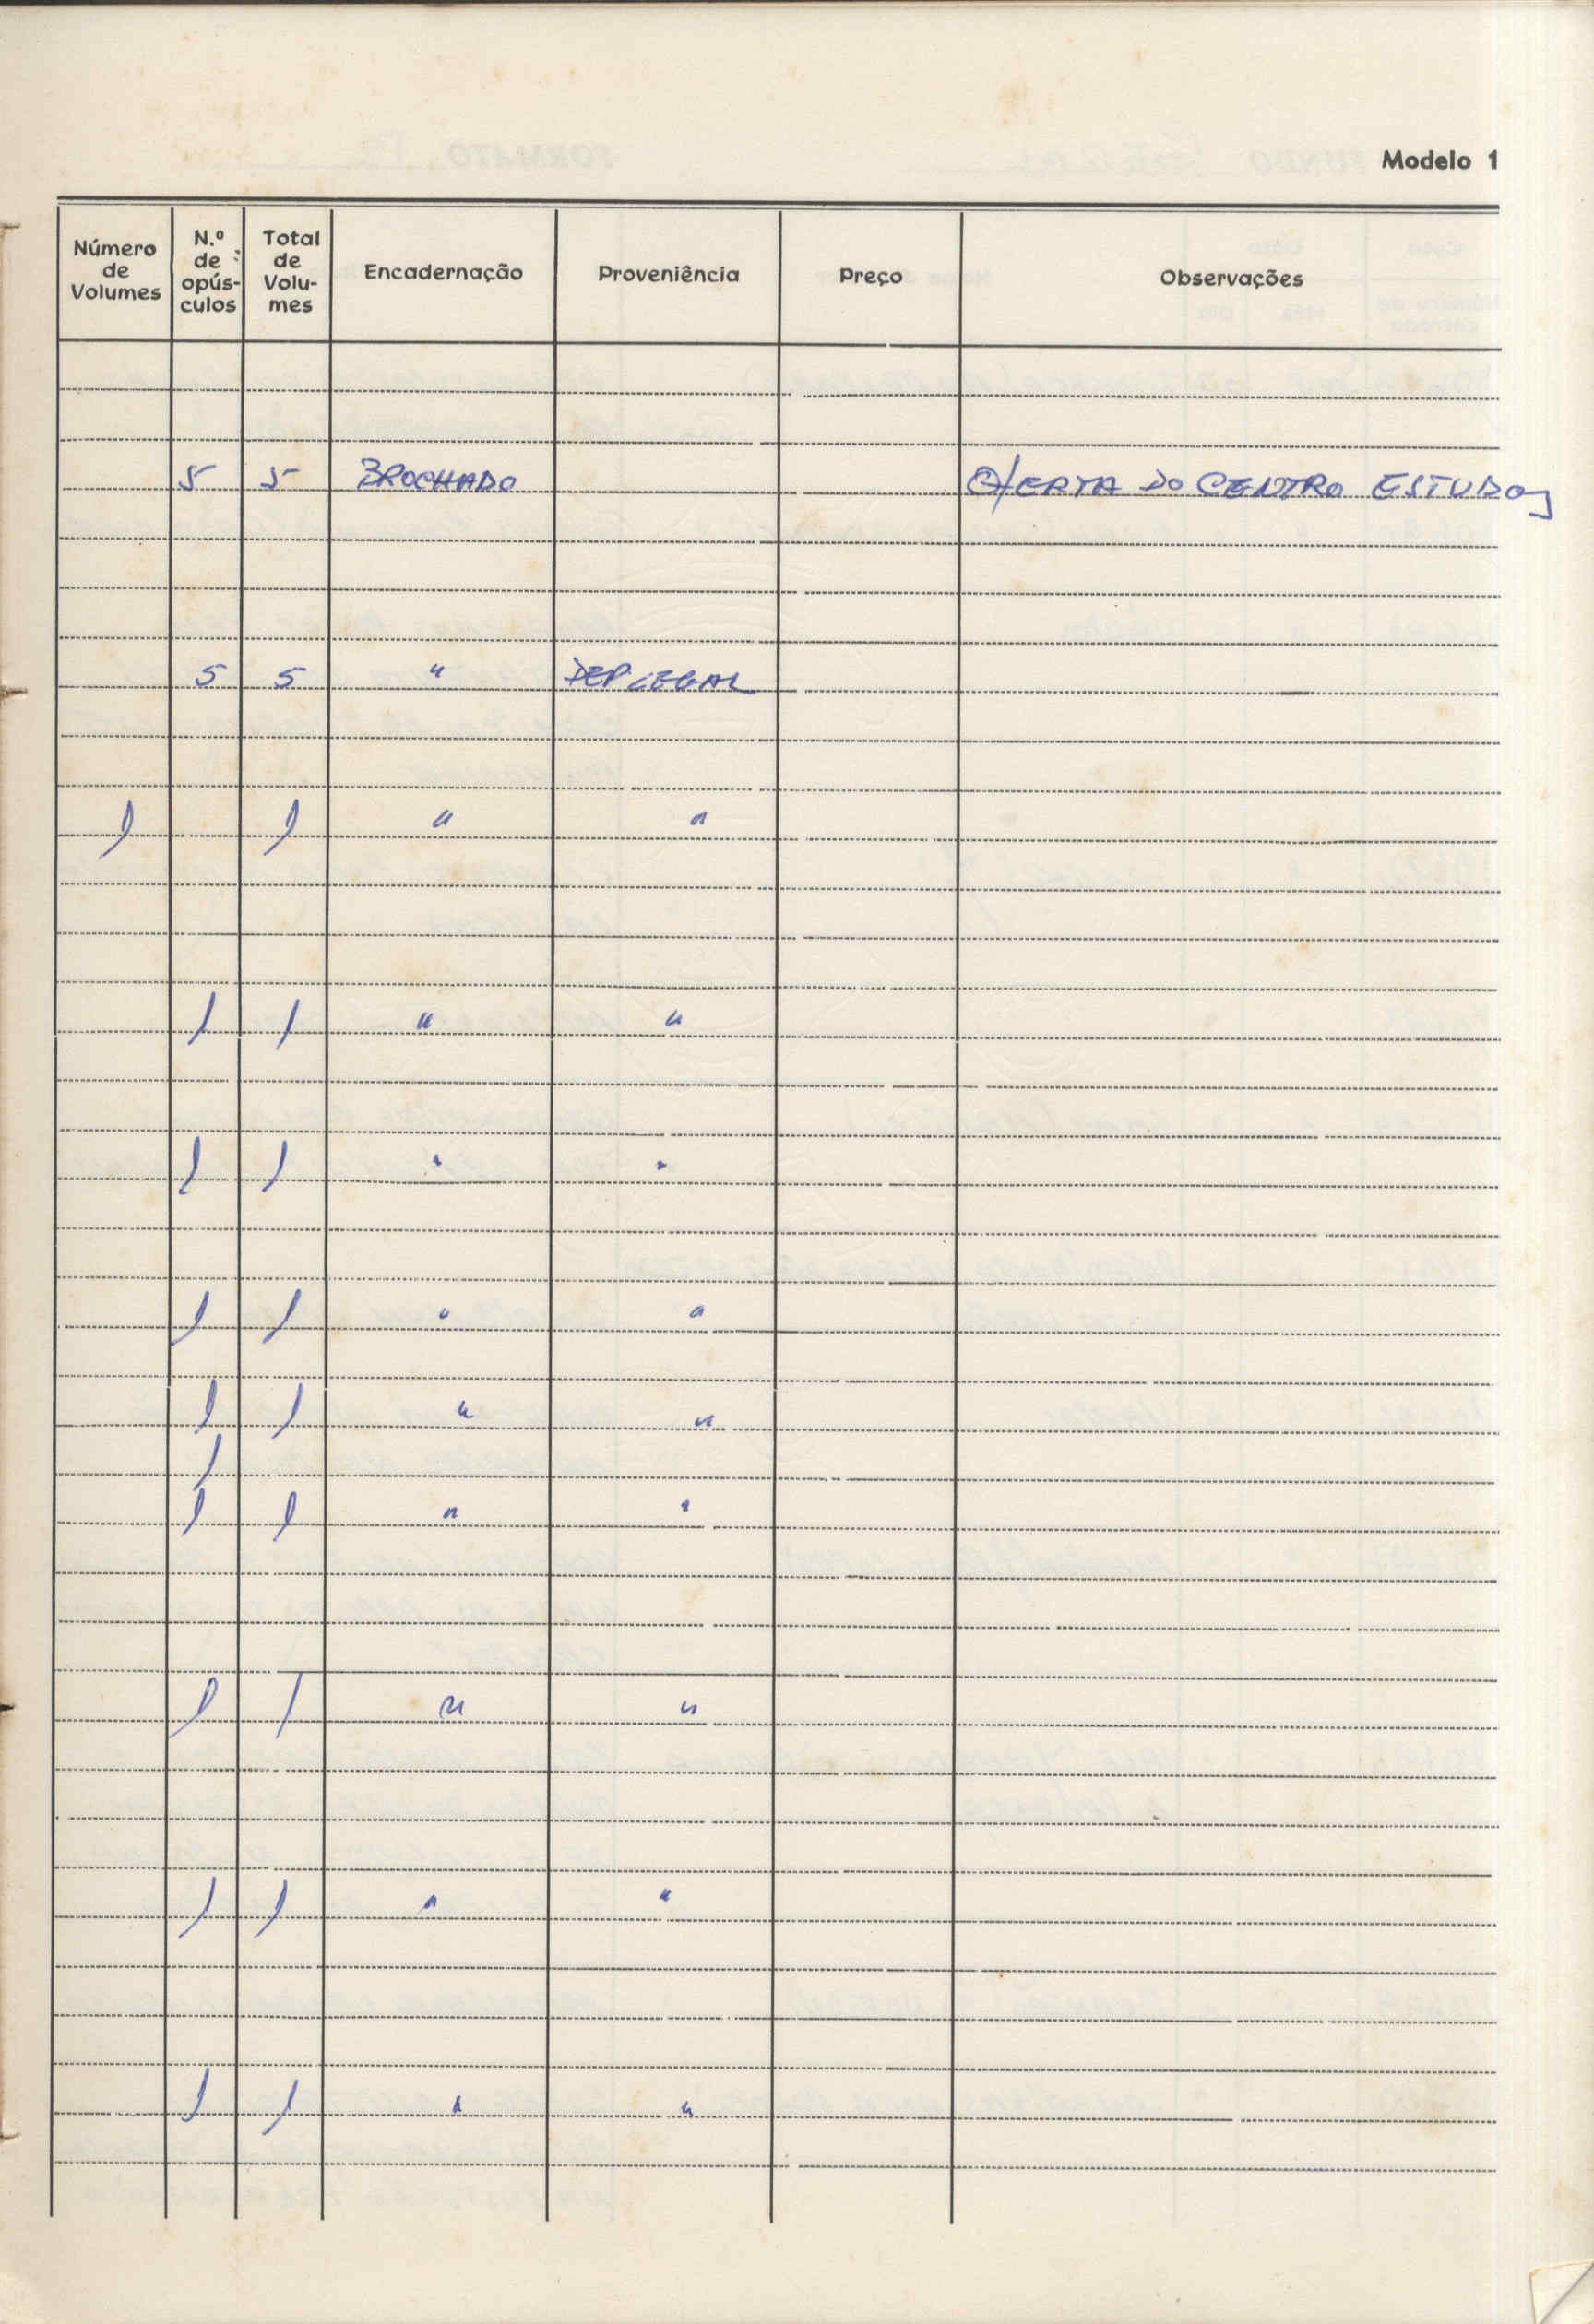 Modelo 1
Número de Volumes N.º de opús-culos Total de Volu-mes Encadernação Proveniência Preço Observações
5 5 BROCHADO OfERTA DO CENTRO ESTUDOS
5 5 " DEP LEGAL
1 1 " "
1 1 " "
1 1 " "
1 1 " "
1 1 " "
1
1 1 " "
1 1 " "
1 1 " "
1 1 " "